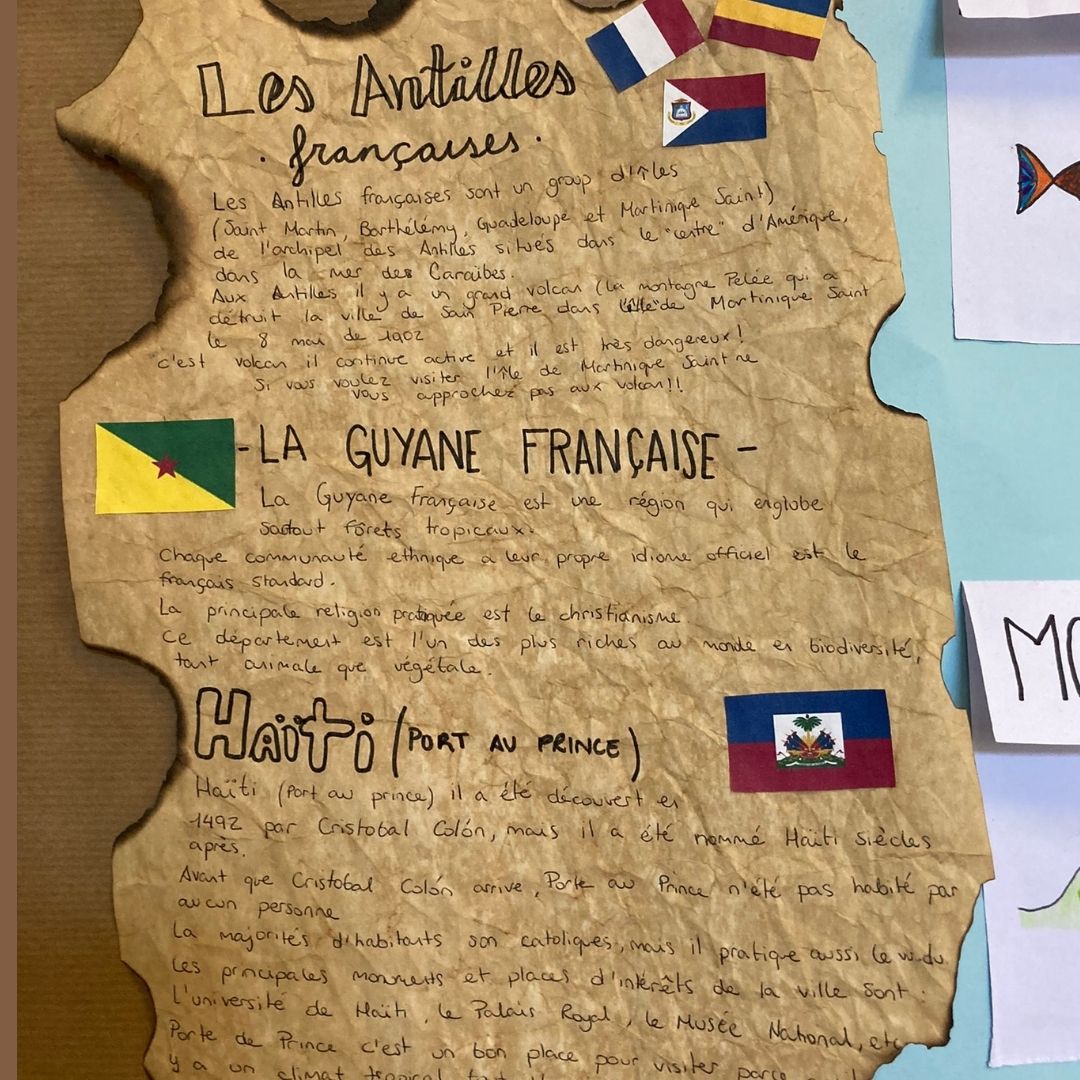 Les Antilles
. françaises.
Les Antilles françaises sont un group d'îles
(Saint Martin, Barthélémy, Guadeloupe et Martinique Saint)
de l'archipel des Antilles situés dans le "centre" d'Amérique,
dans la mer des Caraïbes.
Aux Antilles il y a un grand volcan (la montagne Pelée qui a
détruit la ville de Sain Pierre dans de Martinique Saint
le 8 mai de 1902
c'est volcan il continue active et il est très dangereux!
Si vous voulez visiter l'île de Martinique Saint ne
vous approchez pas aux volcan!!
- LA GUYANE FRANÇAISE -
La Guyane Française est une région qui englobe
fôrets tropicaux.
Chaque communauté ethnique a leur propre idiome officiel est le
français standard.
La principale religion pratiquée est le christianisme.
Ce département est l'un des plus riches au monde en biodiversité,
tant animale que végétale.
Haïti (PORT AU PRINCE)
Haïti (Port au prince) il a été découvert en
1492 par Cristobal Colón, mais il a été nommé Haïti siècles
après.
Avant que Cristobal Colón arrive, Porte au Prince n'été pas habité par
aucun personne
La majorités d'habitants son catoliques, mais il pratique aussi le vudu.
Les principales monuments et places d'intérêts de la ville sont :
L'université de Haïti, le Palais Royal, le Musée National, etc
Porte de Prince c'est un bon place pour visiter parce
y a un climat tropical
MO